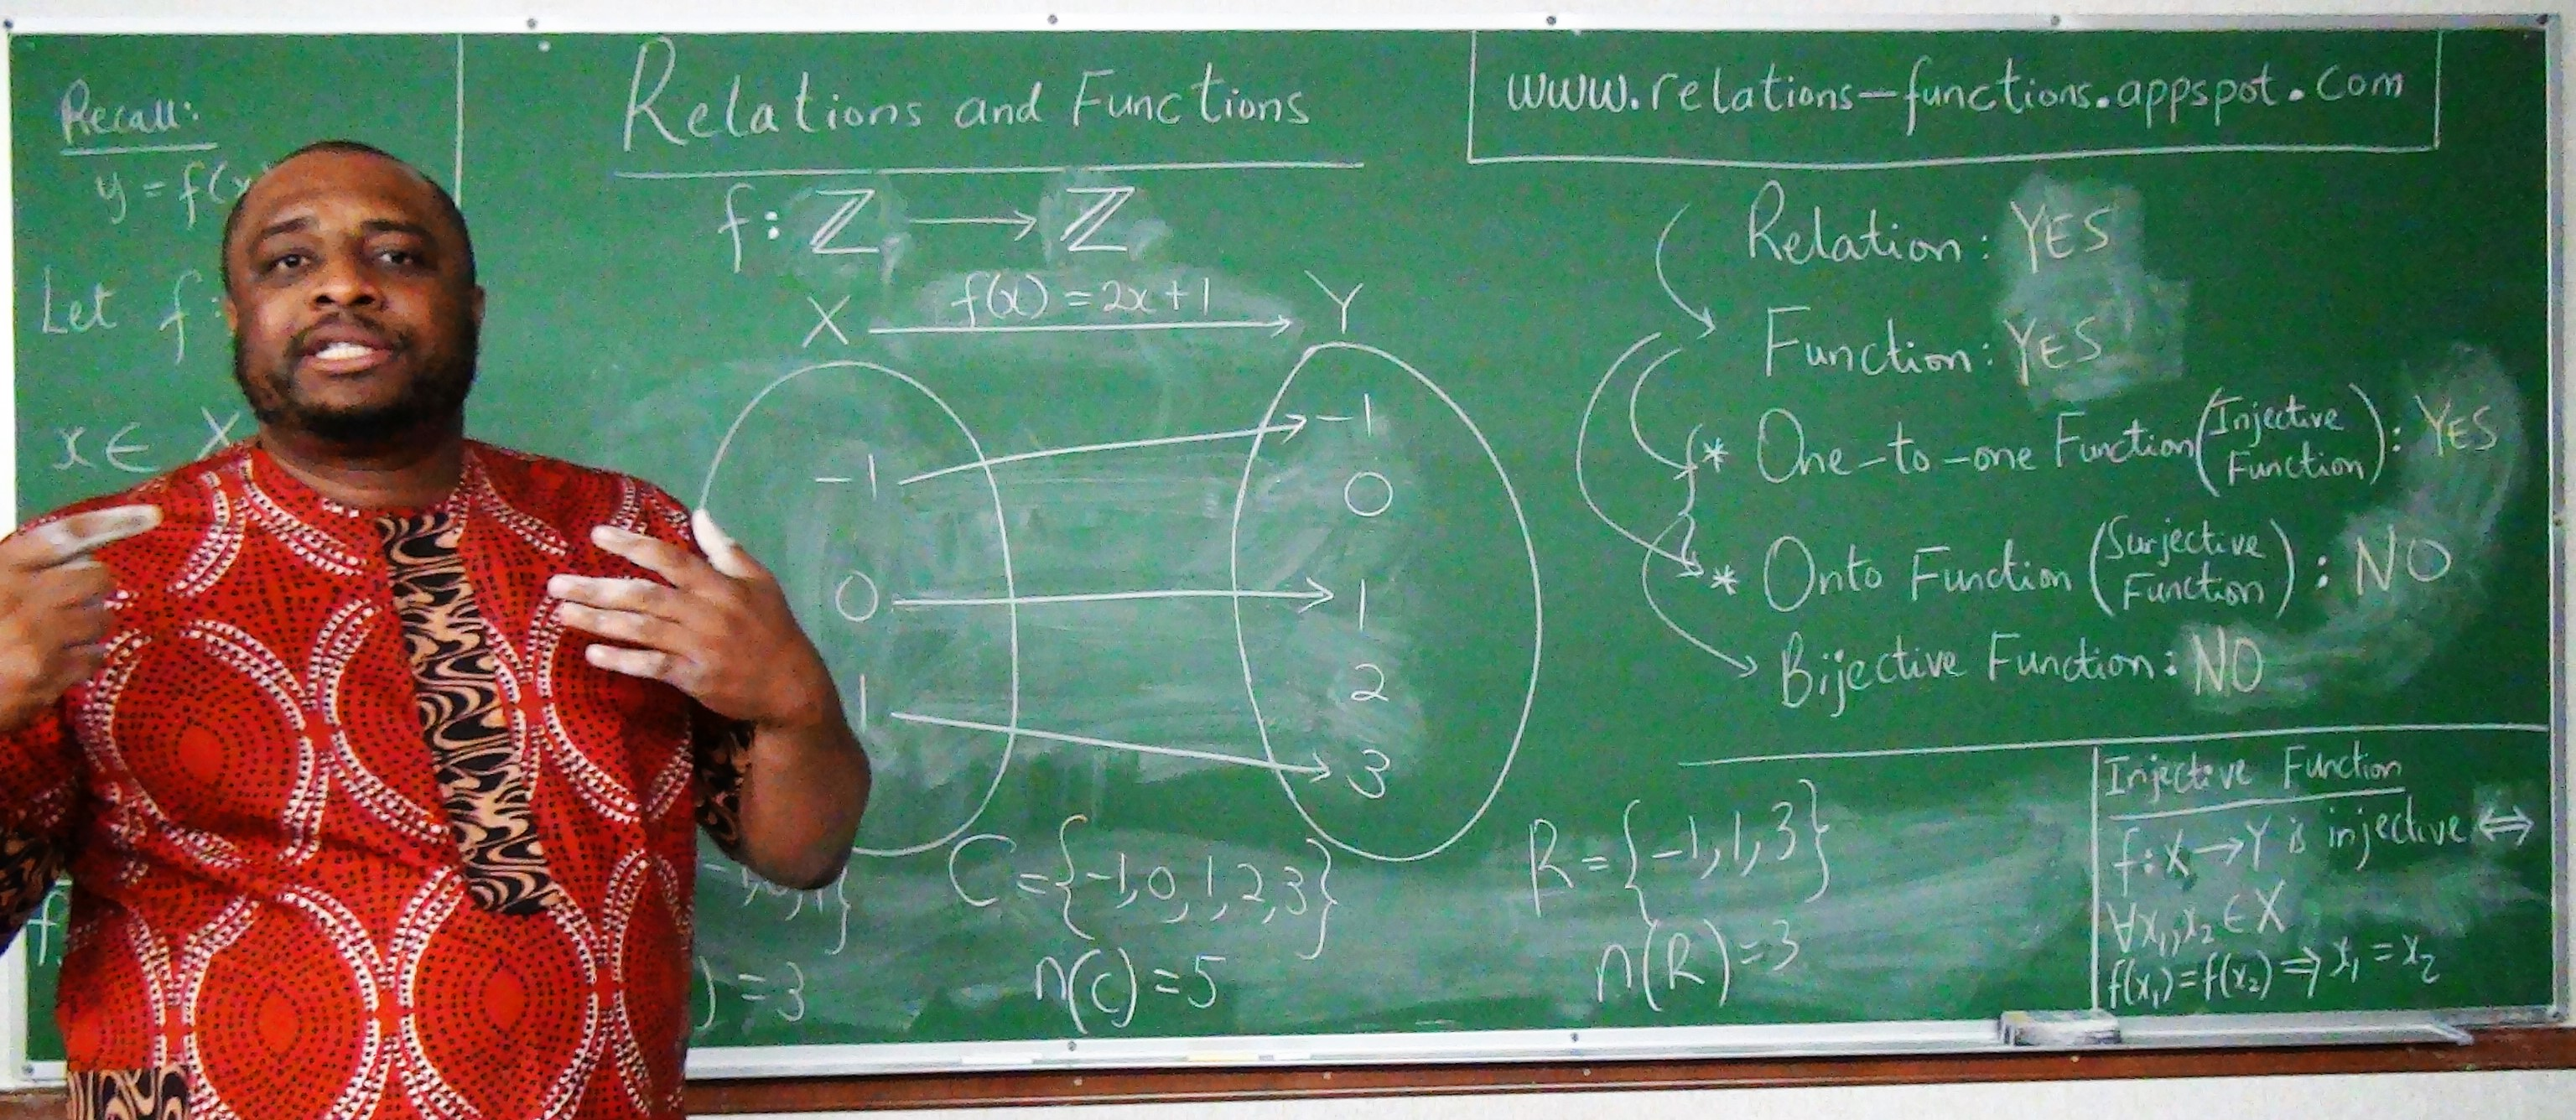 Recall:
y = f(x
Let f:
x ∈ X
f
Relations and Functions
f: ℤ → ℤ
f(x) = 2x+1
X → Y
-1
0
1
-1
0
1
2
3
) = 3
C = {-1, 0, 1, 2, 3}
n(C) = 5
R = {-1, 1, 3}
n(R) = 3
www.relations-functions.appspot.com
Relation: YES
Function: YES
* One-to-one Function (Injective Function): YES
* Onto Function (Surjective Function): NO
Bijective Function: NO
Injective Function
f: X → Y is injective ⇔
∀x₁, x₂ ∈ X
f(x₁) = f(x₂) ⇒ x₁ = x₂